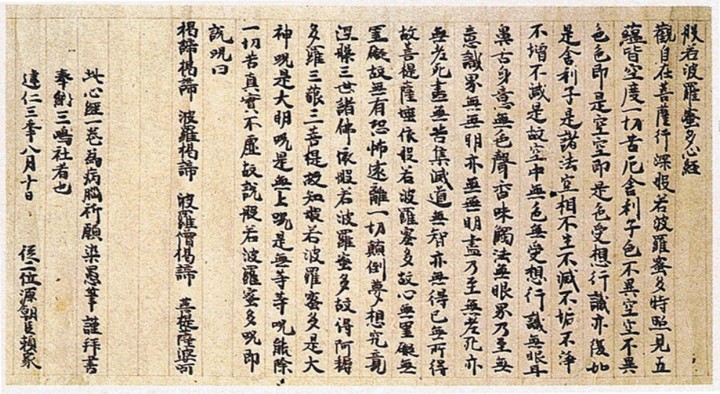 般若波羅蜜多心経
觀自在菩薩行深般若波羅蜜多時照見五
蘊皆空度一切苦厄舍利子色不異空空不異
色色即是空空即是色受想行識亦復如
是舍利子是諸法空相不生不滅不垢不淨
不増不減是故空中無色無受想行識無眼耳
鼻舌身意無色聲香味觸法無眼界乃至無
意識界無無明亦無無明盡乃至無老死亦
無老死盡無苦集滅道無智亦無得已無所得
故菩提薩埵依般若波羅蜜多故心無罣礙無
罣礙故無有恐怖遠離一切顛倒夢想究竟
涅槃三世諸佛依般若波羅蜜多故得阿耨
多羅三藐三菩提故知般若波羅蜜多是大
神呪是大明呪是無上呪是無等等呪能除
一切苦真實不虛故説般若波羅蜜多呪即
説呪曰
揭諦揭諦 波羅揭諦 波羅僧揭諦 菩提薩婆訶
此心経一巻為病脳祈願染愚筆謹拝書
奉納三嶋社者也
建仁三年八月十日 従二位源朝臣頼家